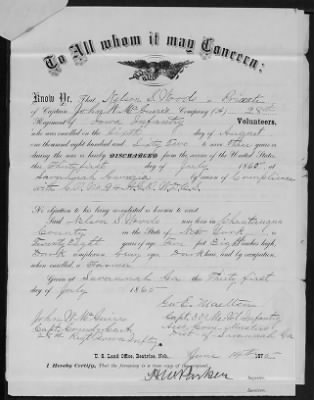 To All whom it may Concern:
Know Ye, That Nelson S. Wood a Private
of Captain John W. McGuire Company (A) 28th
Regiment of Iowa Infantry Volunteers,
who was enrolled on the Eighth day of August
one thousand eight hundred and Sixty two to serve three years or
during the war, is hereby DISCHARGED from the service of the United States,
this Thirty first day of July 1865, at
Savannah Georgia by reason of Compliance
with
No objection to his being reenlisted is known to exist.
Said Nelson S. Wood was born in Chautauqua
County in the State of New York, is
Twenty Eight years of age, Five feet Eight inches high,
Dark complexion, eyes, Dark hair, and by occupation,
when enrolled, a Farmer
Given at Savannah Ga this Thirty first
day of July 1865
Geo E. Moulton
John W. McGuire Capt. 30th Me Vol Infantry
Capt. Comdg Co A Asst Com of Musters
28th Regt Iowa Infty Dist of Savannah Ga
U. S. Land Office, Beatrice, Neb. June 14th
I Hereby Certify, That the foregoing is a true copy of the original
Register.
Receiver.